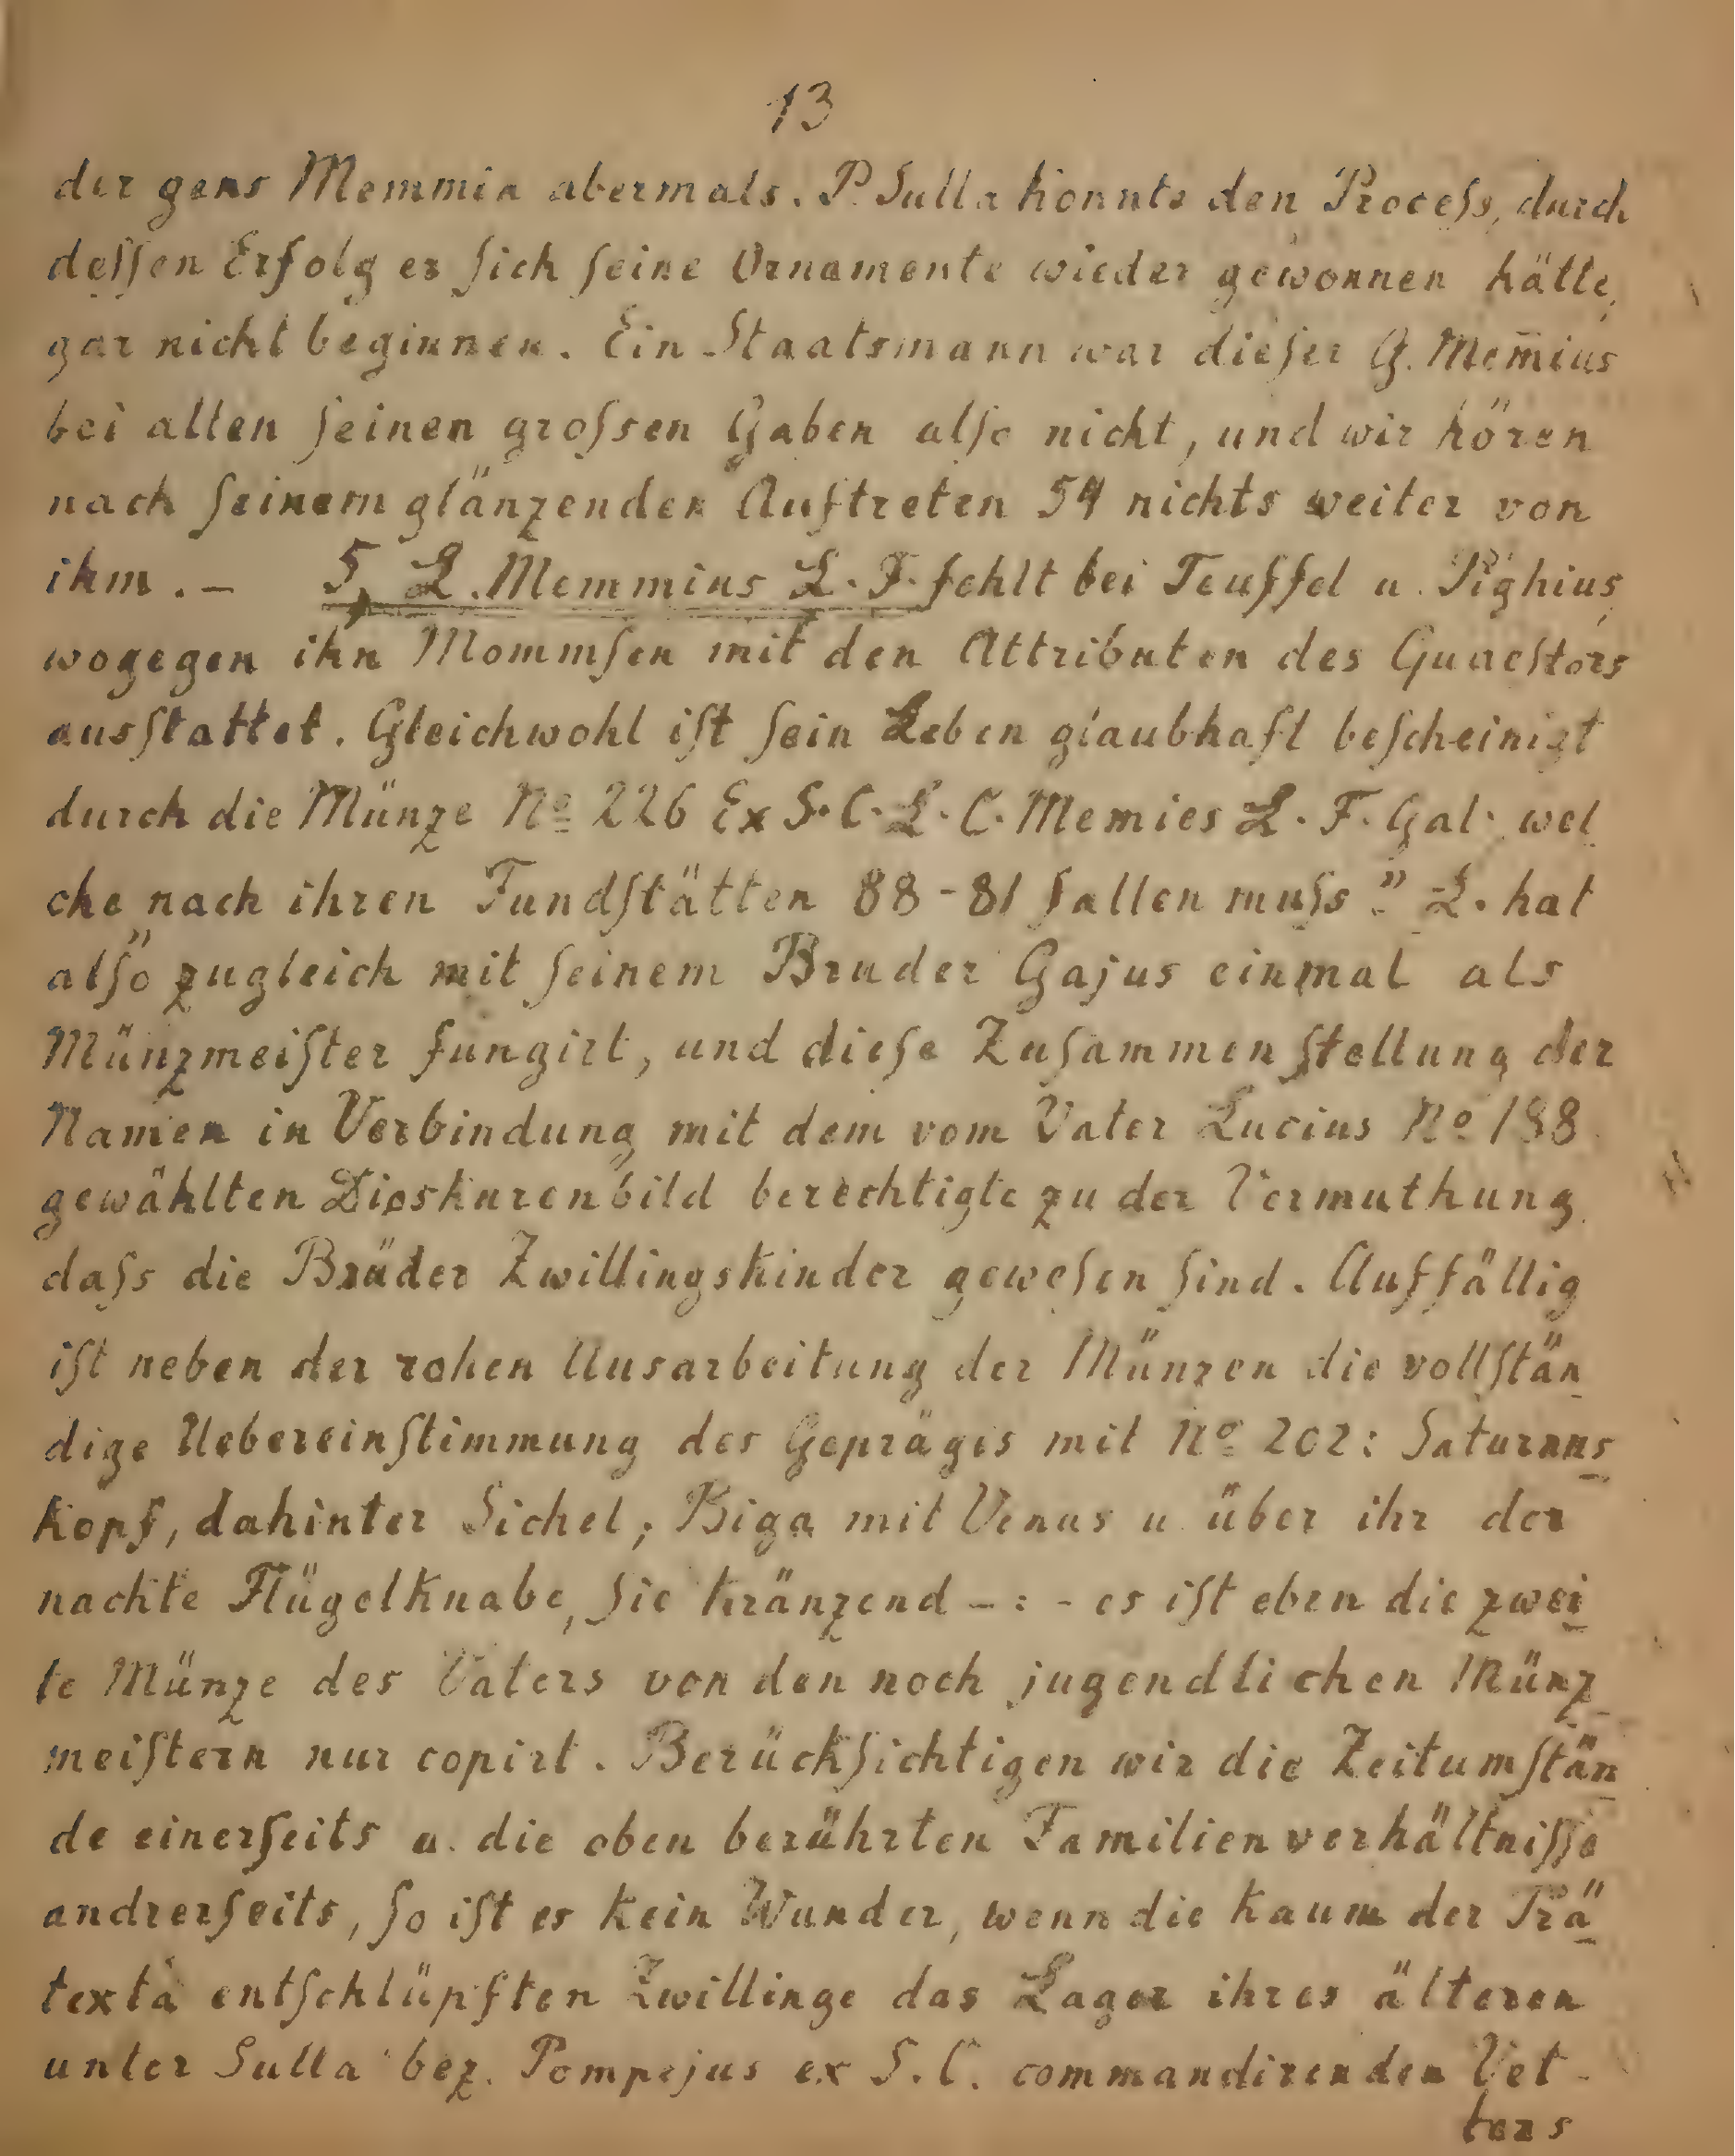 13
der gens Memmia abermals. P. Sulla konnte den Proceſs, durch
deſſen Erfolg er ſich ſeine Ornamente wieder gewonnen hätte,
gar nicht beginnen. Ein Staatsmann war dieſer G. Mem̄ius
bei allen ſeinen groſsen Gaben alſo nicht, und wir hören
nach ſeinem glänzenden Auftreten 54 nichts weiter von
ihm. – 5, L. Memmius L. F. fehlt bei Teuffel u. Pighius,
wogegen ihn Mommſen mit den Attributen des Quaeſtors
ausſtattet. Gleichwohl iſt ſein Leben glaubhaft beſcheinigt
durch die Münze No 226 Ex S. C. L. C. Memies L. F. Gal. wel
che nach ihren Fundſtätten 88 - 81 fallen muſs." L. hat
alſo zugleich mit ſeinem Bruder Gajus einmal als
Münzmeiſter fungirt, und dieſe Zuſammenſtellung der
Namen in Verbindung mit dem vom Vater Lucius No 188
gewählten Dioskurenbild berechtigte zu der Vermuthung,
daſs die Brüder Zwillingskinder geweſen ſind. Auffällig
iſt neben der rohen Ausarbeitung der Münzen die vollſtän
dige Uebereinſtimmung des Gepräges mit No 202: Saturnus
kopf, dahinter Sichel; Biga mit Venus u. über ihr der
nackte Flügelknabe, ſie kränzend – : - es iſt eben die zwei
te Münze des Vaters von den noch jugendlichen Münz
meiſtern nur copirt. Berückſichtigen wir die Zeitumſtän
de einerſeits u. die oben berührten Familienverhältniſſe
andrerſeits, ſo iſt es kein Wunder, wenn die kaum der Prä
texta entſchlüpften Zwillinge das Lager ihres älteren
unter Sulla bez. Pompejus ex S. C. commandirenden Vet-
ters